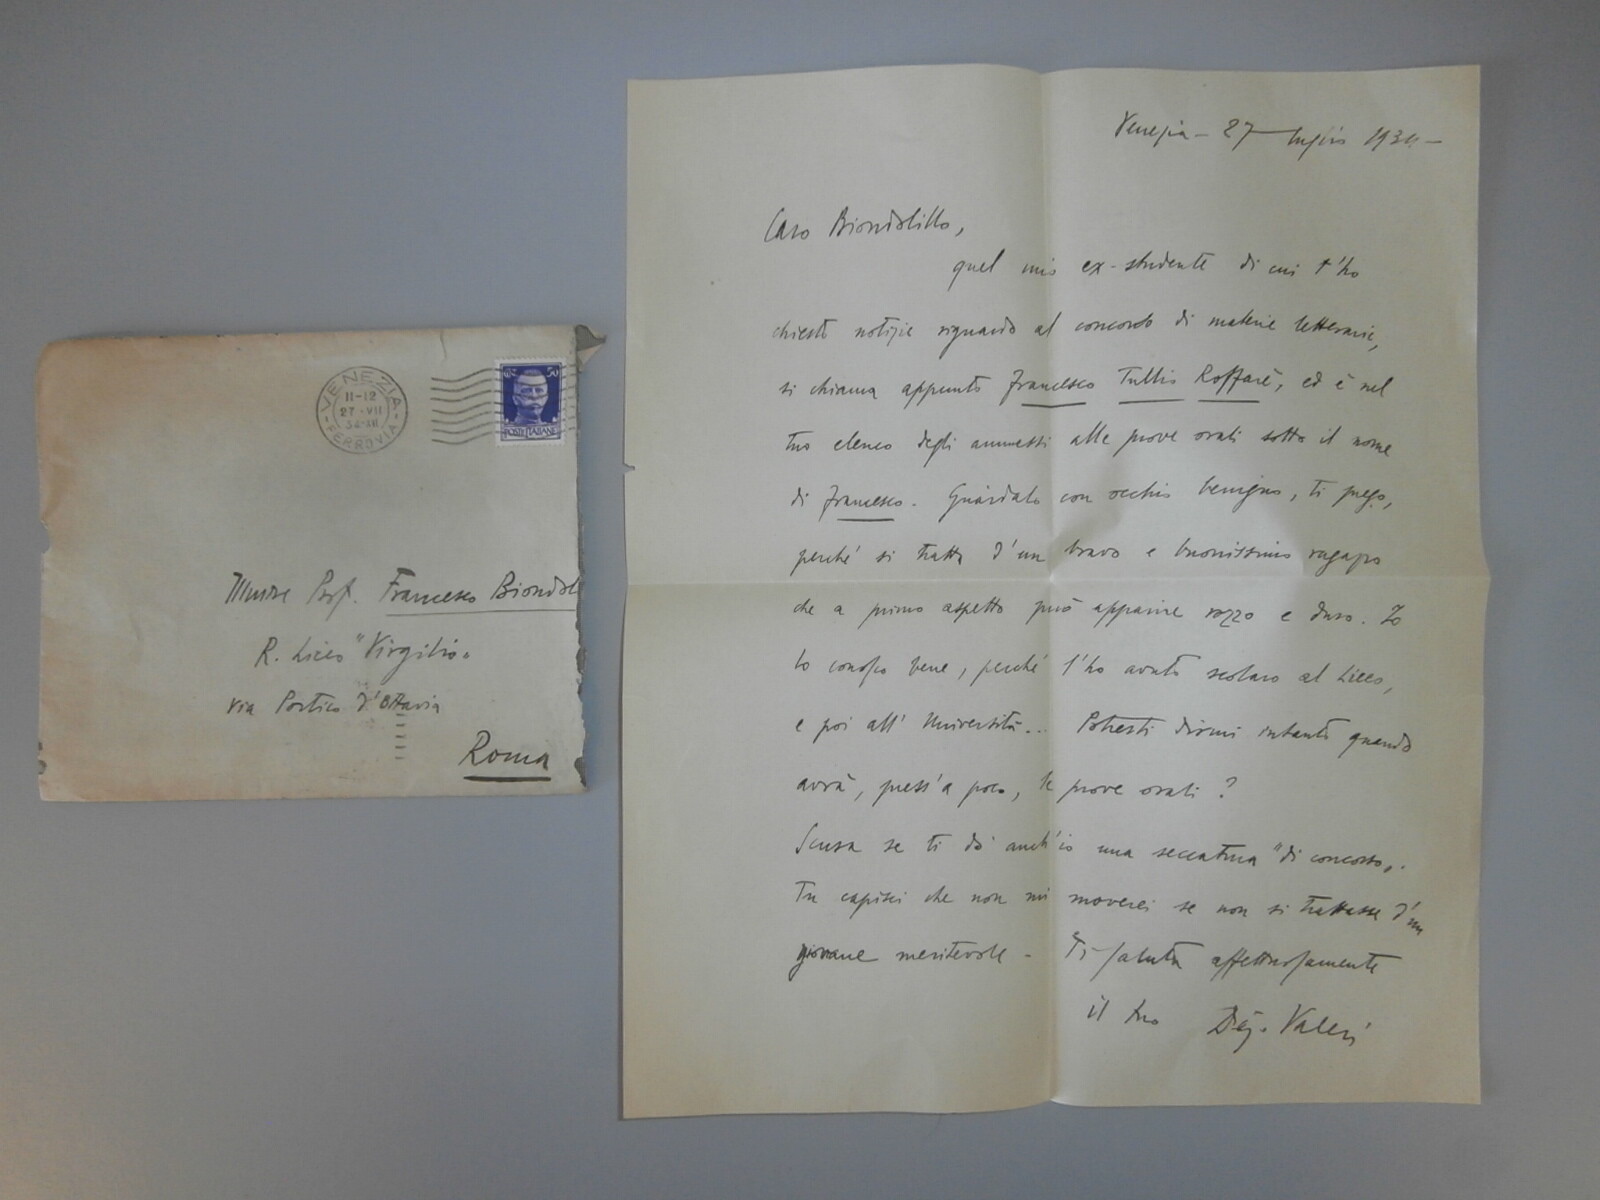 VENEZIA
11-12
27·VII
34·XII
FERROVIA
50
POSTE ITALIANE
Illustre Prof. Francesco Biondol
R. Liceo "Virgilio"
via Portico d'Ottavia
Roma
Venezia - 27 luglio 1934 -
Caro Biondolillo,
quel mio ex-studente di cui t'ho
chiesto notizie riguardo al concorso di materie letterarie,
si chiama appunto Francesco Tullio Roffarè, ed è nel
tuo elenco degli ammessi alle prove orali sotto il nome
di Francesco. Guardalo con occhio benigno, ti prego,
perché si tratta d'un bravo e buonissimo ragazzo
che a primo aspetto può apparire rozzo e duro. Io
lo conosco bene, perché l'ho avuto scolaro al Liceo,
e poi all'Università... Potresti dirmi intanto quando
avrà, press'a poco, le prove orali?
Scusa se ti dò anch'io una seccatura "di concorso".
Tu capisci che non mi moverei se non si trattasse d'un
giovane meritevole - Ti saluta affettuosamente
il tuo Dieg. Valeri